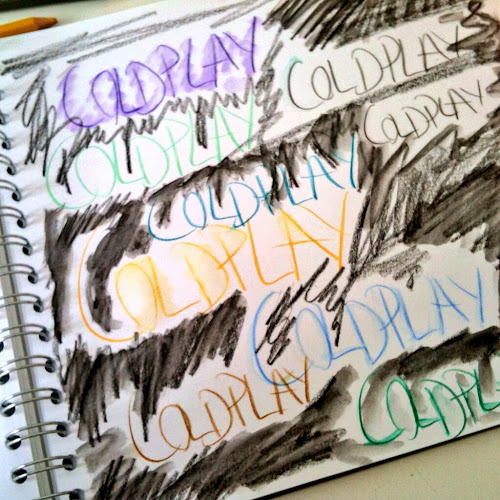 COLDPLAY
COLDPLAY
COLDPLAY
COLDPLAY
COLDPLAY
COLDPLAY
COLDPLAY
COLDPLAY
COLDPL